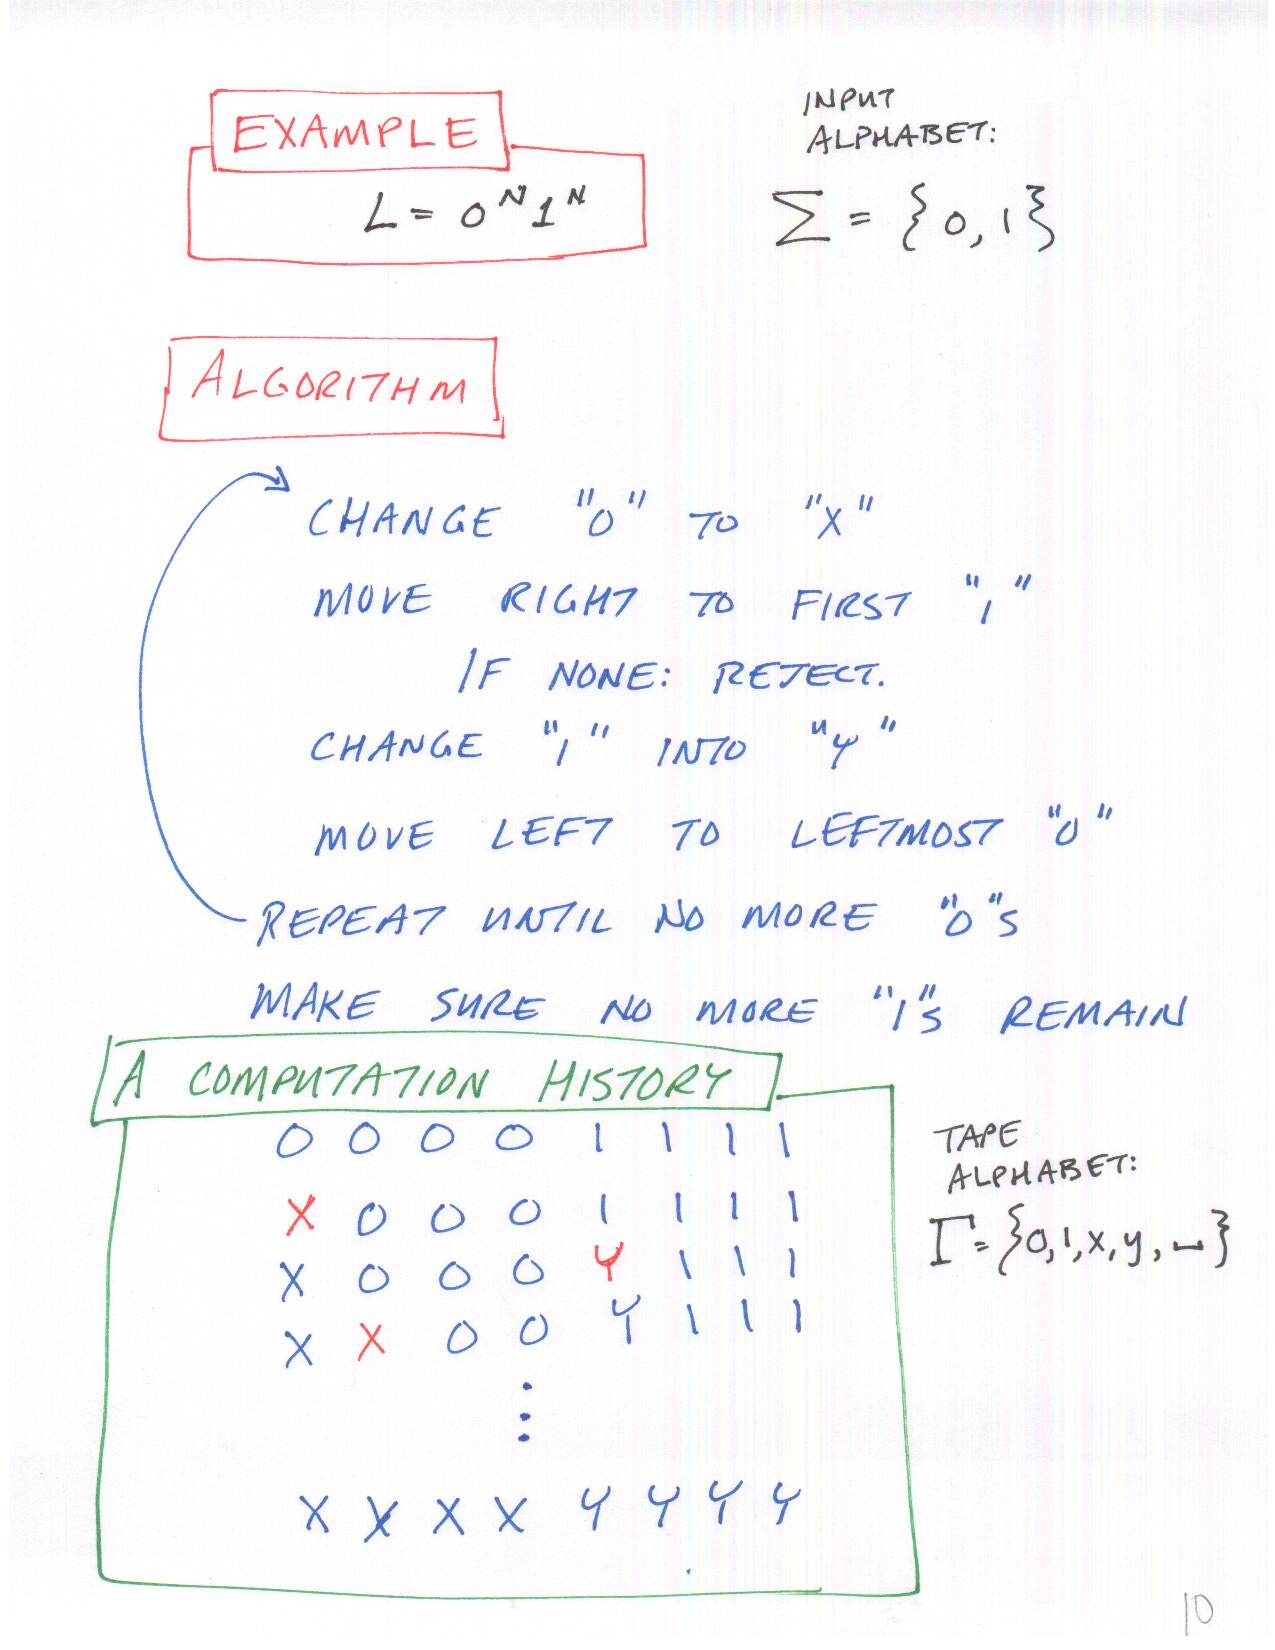 EXAMPLE
L = 0^N 1^N
INPUT
ALPHABET:
Σ = {0, 1}
ALGORITHM
CHANGE "0" TO "X"
MOVE RIGHT TO FIRST "1"
IF NONE: REJECT.
CHANGE "1" INTO "Y"
MOVE LEFT TO LEFTMOST "0"
REPEAT UNTIL NO MORE "0"S
MAKE SURE NO MORE "1"S REMAIN
A COMPUTATION HISTORY
0 0 0 0 1 1 1 1
X 0 0 0 1 1 1 1
X 0 0 0 Y 1 1 1
X X 0 0 Y 1 1 1
⋮
X X X X Y Y Y Y
TAPE
ALPHABET:
Γ = {0, 1, X, Y, ⎵}
10